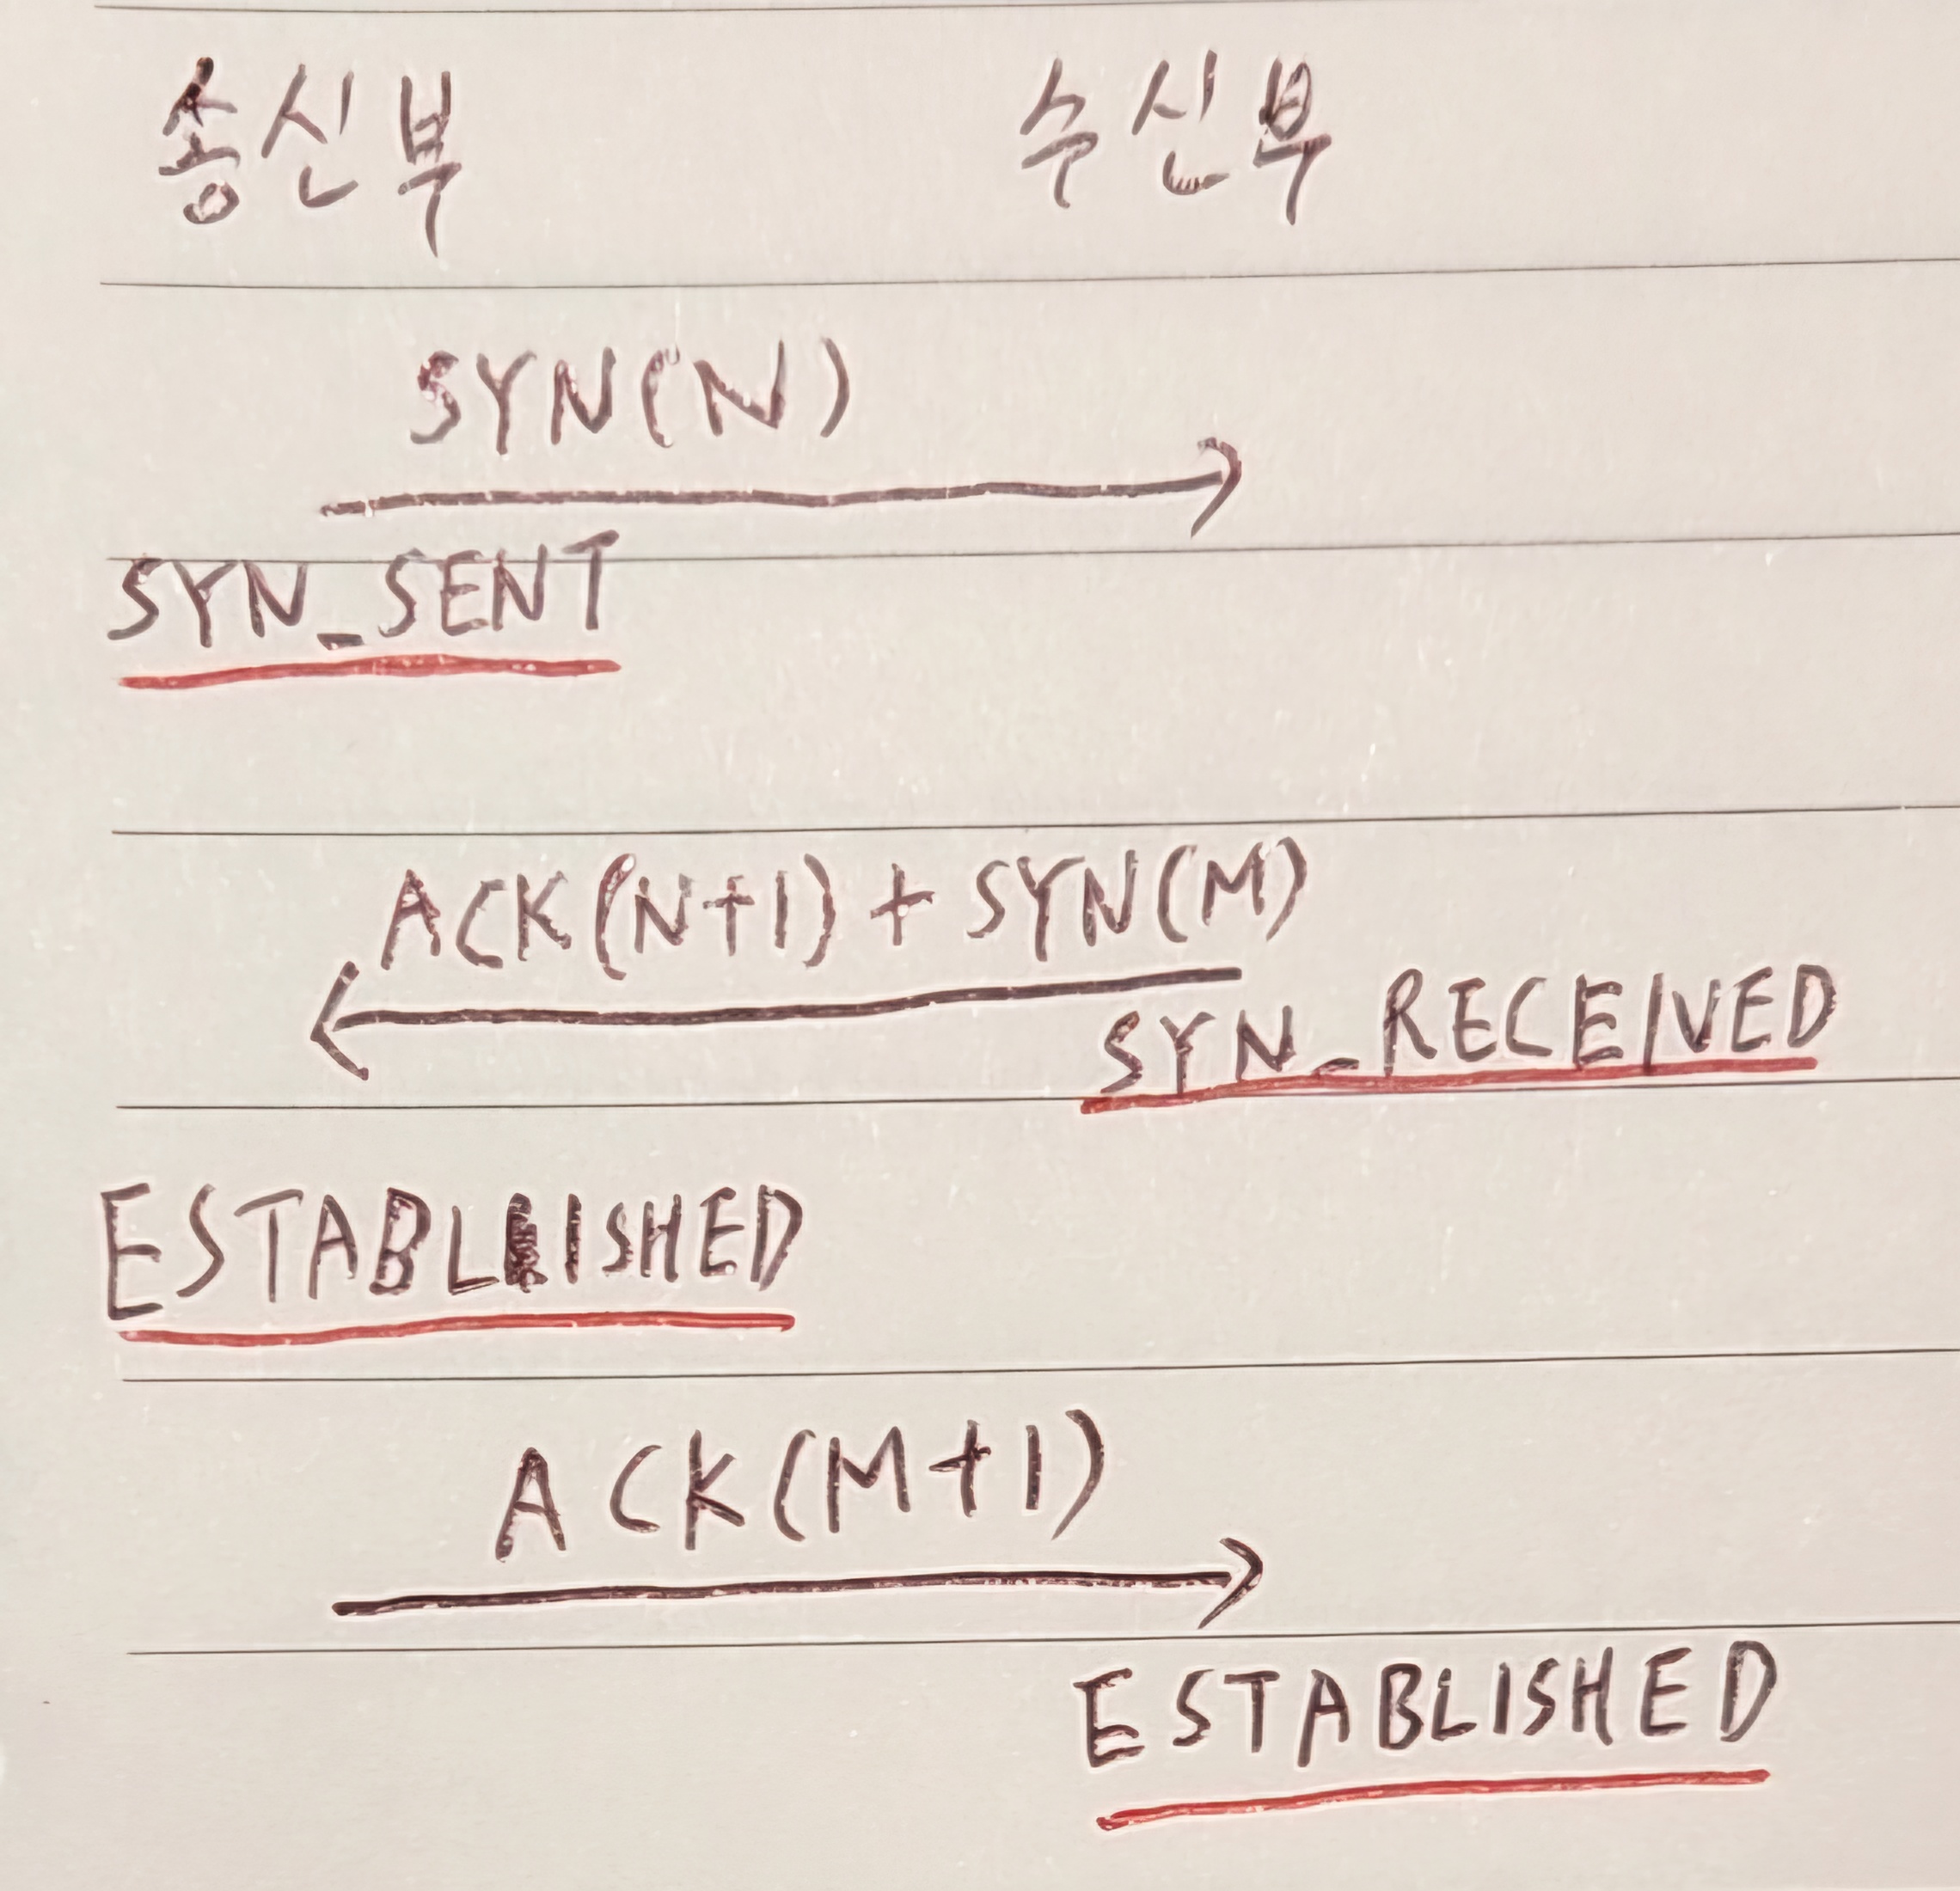 송신부 수신부
SYN(N)
SYN_SENT
ACK(N+1) + SYN(M)
SYN_RECEIVED
ESTABLISHED
ACK(M+1)
ESTABLISHED